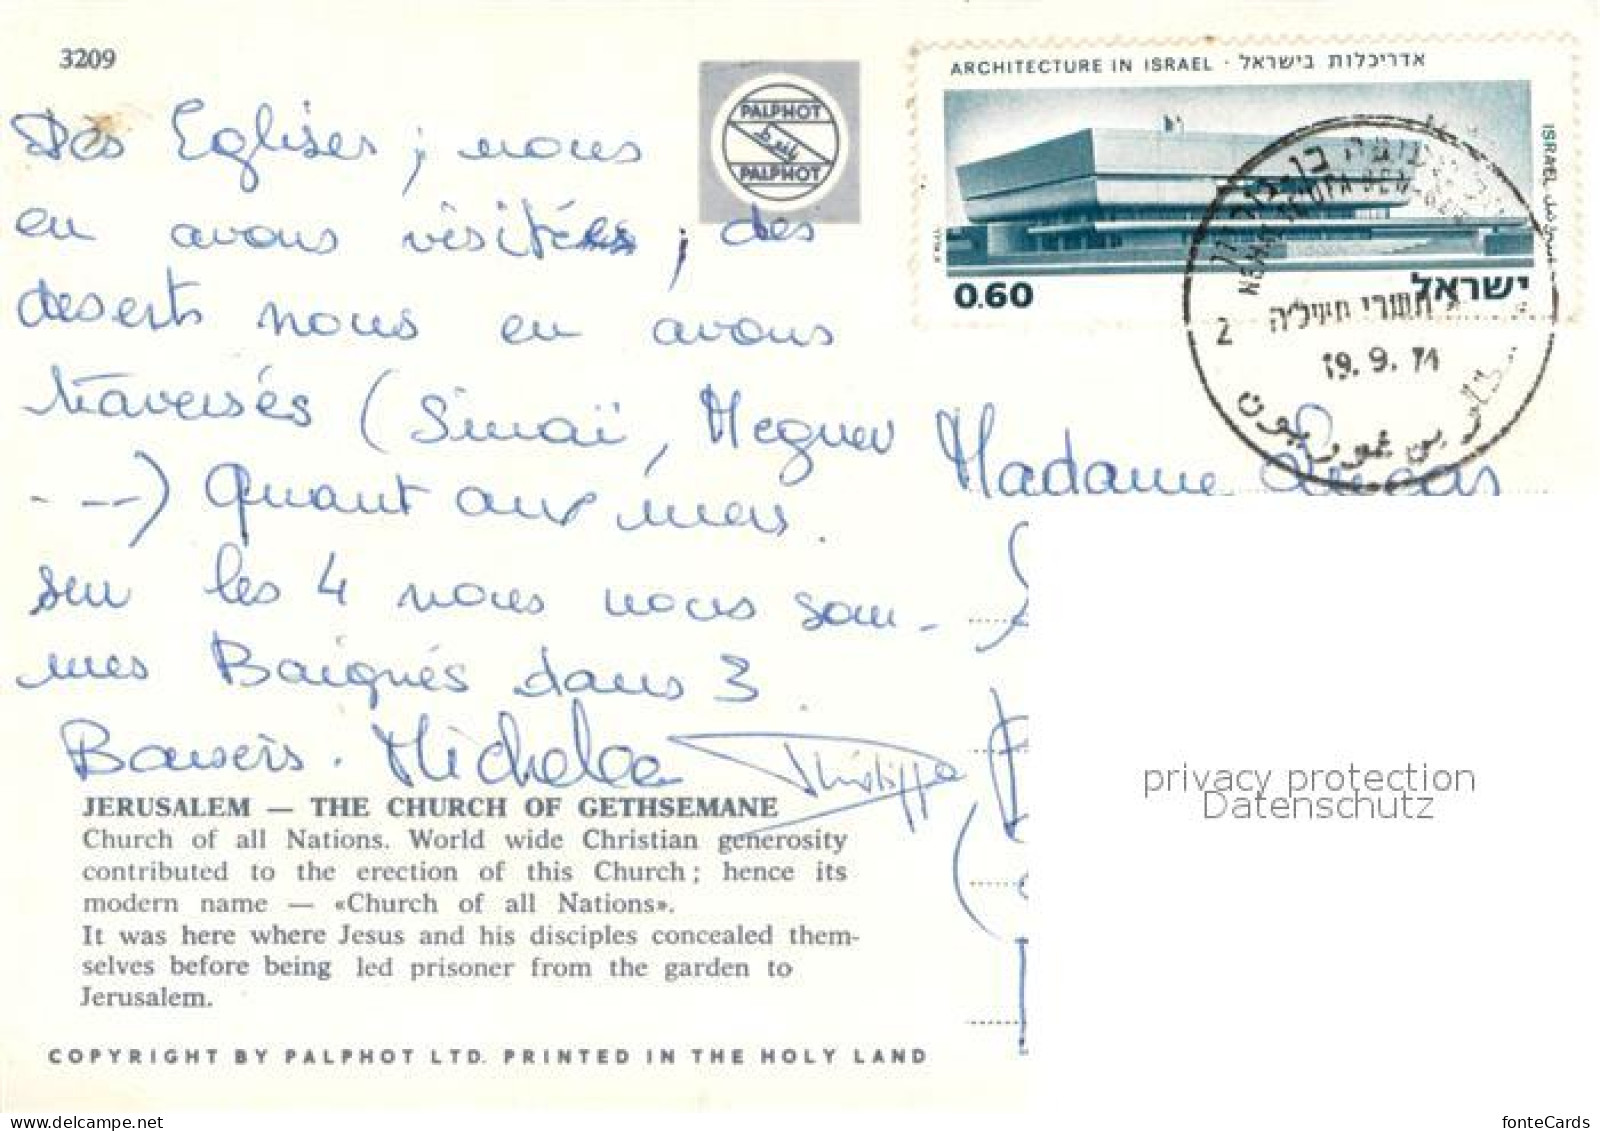 3209
PALPHOT
PALPHOT
ARCHITECTURE IN ISRAEL · אדריכלות בישראל
ISRAEL
0.60
ישראל
2
תשרי תשל"ה
19. 9. 74
Des Eglises ; nous
en avons visitées, des
deserts nous en avons
traversés (Sinaï, Neguev
- --) Quant aux mers.
sur les 4 nous nous som-
mes Baignés dans 3.
Baisers. Michele
Philippe
Madame
JERUSALEM — THE CHURCH OF GETHSEMANE
Church of all Nations. World wide Christian generosity
contributed to the erection of this Church; hence its
modern name — «Church of all Nations».
It was here where Jesus and his disciples concealed them-
selves before being led prisoner from the garden to
Jerusalem.
COPYRIGHT BY PALPHOT LTD. PRINTED IN THE HOLY LAND
privacy protection
Datenschutz
www.delcampe.net
fonteCards